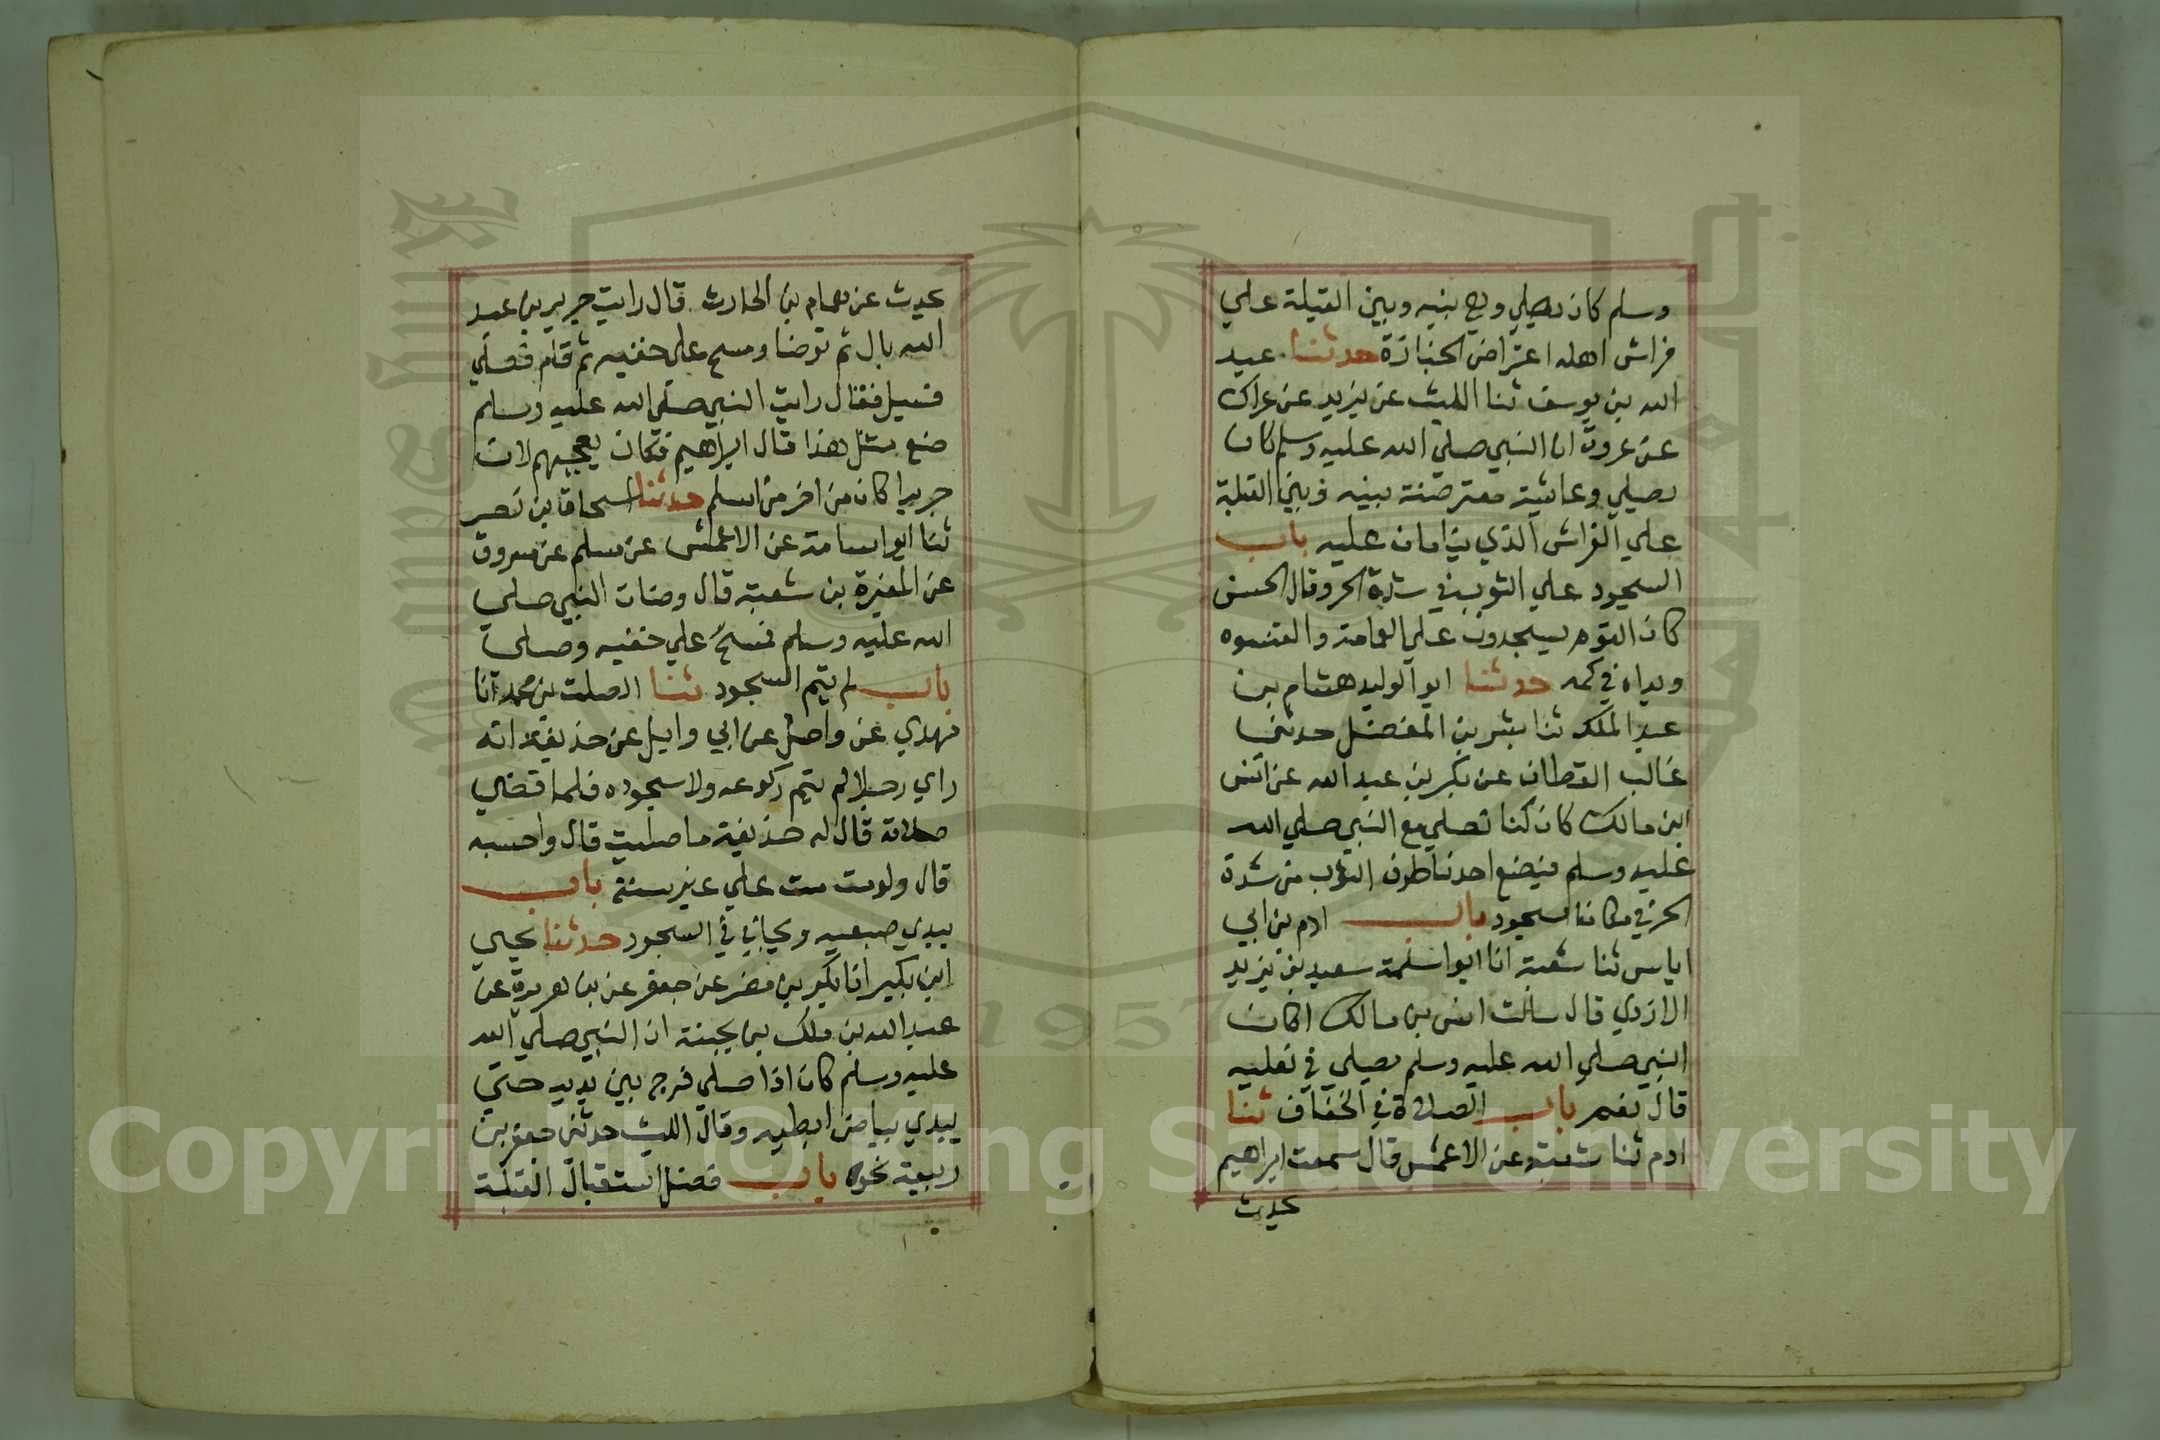 وسلم كان يصلي وهي بينه وبين القبلة علي
فراش اهله اعتراض الجنازة حدثنا عبد
الله بن يوسف ثنا الليث عن يزيد عن عراك
عن عروة ان النبي صلي الله عليه وسلم كان
يصلي وعائشة معترضة بينه وبين القبلة
علي الفراش الذي ينامان عليه باب
السجود علي الثوب في شدة الحر وقال الحسن
كان القوم يسجدون علي العمامة والقلنسوه
ويداه في كمه حدثنا ابو الوليد هشام بن
عبد الملك ثنا بشر بن المفضل حدثني
غالب القطان عن بكر بن عبد الله عن انس
ابن مالك كان كنا نصلي مع النبي صلي الله
عليه وسلم فيضع احدنا طرف الثوب من شدة
الحر في مكان السجود باب ادم بن ابي
اياس ثنا شعبة انا ابوا سلمة سعيد بن يزيد
الازدي قال سالت انس بن مالك اكان
النبي صلي الله عليه وسلم يصلي في نعليه
قال نعم باب الصلاة في الخفاف ثنا
ادم ثنا شعبة عن الاعمش قال سمعت ابراهيم
يحدث
يحدث عن همام بن الحارث قال رايت جرير بن عبد
الله بال ثم توضا ومسح علي خفيه ثم قام فصلي
فسيل فقال رايت النبي صلي الله عليه وسلم
صنع مثل هذا قال ابراهيم فكان يعجبهم لان
جريرا كان من اخر من اسلم حدثنا اسحاق بن نصر
ثنا ابو اسامة عن الاعمش عن مسلم عن مسروق
عن المغيرة بن شعبة قال وضات النبي صلي
الله عليه وسلم فمسح علي خفيه وصلي
باب لم يتم السجود ثنا الصلت بن محمد انا
مهدي عن واصل عن ابي وايل عن حذيفة انه
راي رجلا لم يتم ركوعه ولا سجوده فلما قضي
صلاته قال له حذيفة ما صليت قال واحسبه
قال ولومت مت علي غير سنة باب
يبدي ضبعيه ويجافي في السجود حدثنا يحيي
ابن بكير انا بكر بن مضر عن جعفر عن بن هرمز عن
عبد الله بن ملك بن بحينة ان النبي صلي الله
عليه وسلم كان اذا صلي فرج بين يديه حتي
يبدي بياض ابطيه وقال الليث حدثني جعفر بن
ربيعة نحوه باب فضل استقبال القبلة
Copyright © King Saud University
1957